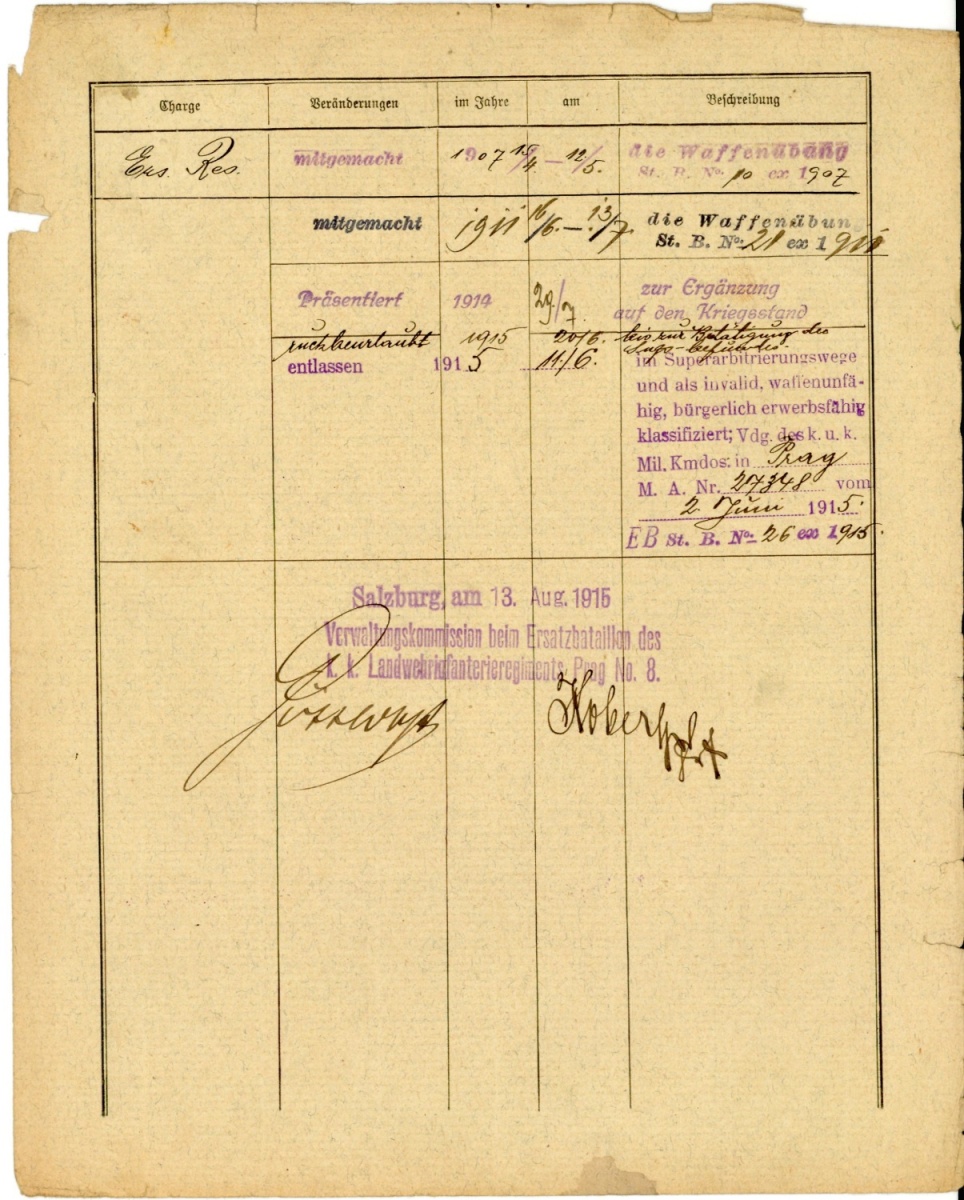 Charge Veränderungen im Jahre am Beschreibung
Ers. Res. mitgemacht 1907 /4. – 12/5. die Waffenübung
St. B. No. 10 ex 1907
mitgemacht 1911 16/6. – 13/7 die Waffenübun
St. B. No. 21 ex 1911
Präsentiert 1914 29/7. zur Ergänzung
auf den Kriegsstand
1915 20/6. bis zur Betätigung des
entlassen 1915 11./6. im Superarbitrierungswege
und als invalid, waffenunfä-
hig, bürgerlich erwerbsfähig
klassifiziert; Vdg. des k. u. k.
Mil. Kmdos: in Prag
M. A. Nr. 27348 vom
2. Juni 1915.
EB St. B. No. 26 ex 1915.
Salzburg, am 13. Aug. 1915
Verwaltungskommission beim Ersatzbataillon des
k. k. Landwehrinfanterieregiments Prag No. 8.